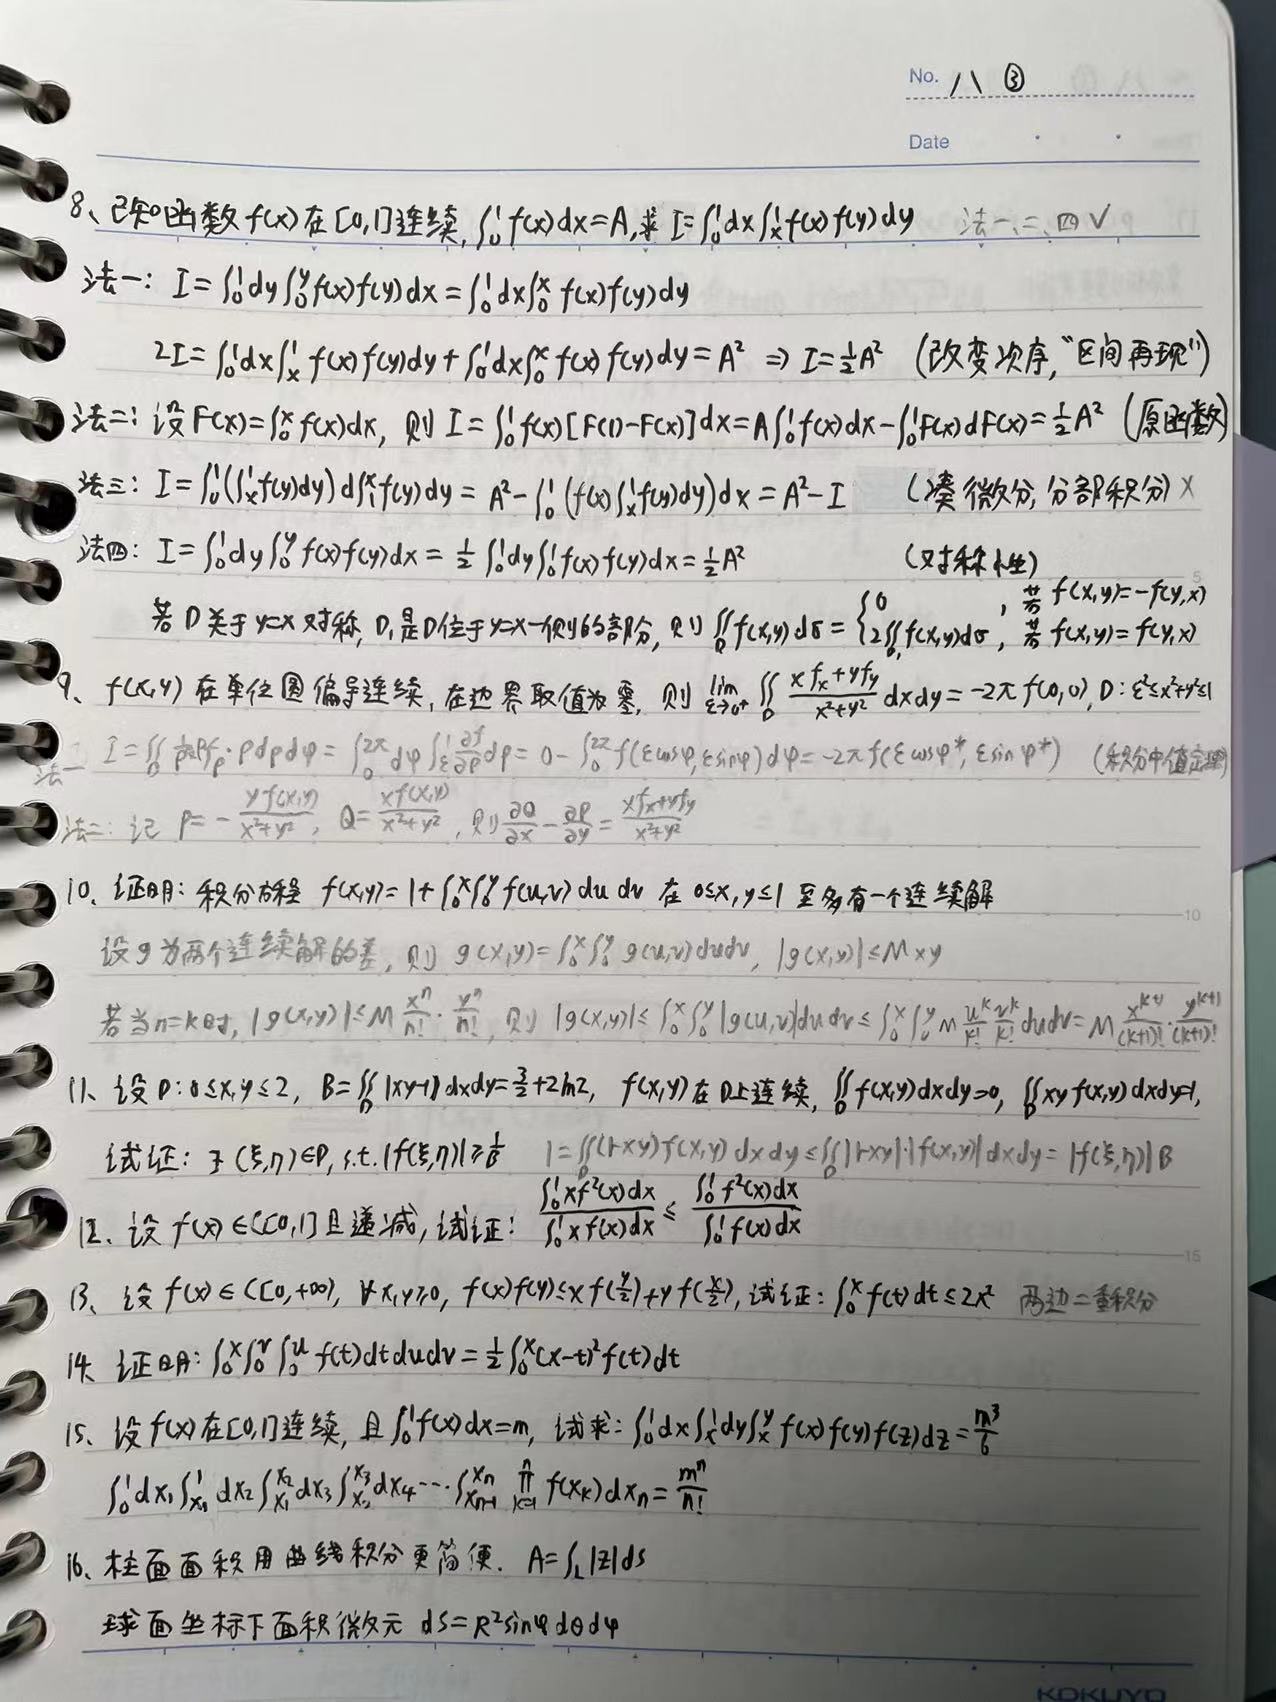 No. 八 ③
Date
8、已知函数 f(x) 在 [0,1] 连续, ∫₀¹ f(x)dx=A, 求 I=∫₀¹dx∫ₓ¹f(x)f(y)dy 法一、二、四 √
法一: I=∫₀¹dy∫₀ʸf(x)f(y)dx=∫₀¹dx∫₀ˣ f(x)f(y)dy
2I=∫₀¹dx∫ₓ¹ f(x)f(y)dy+∫₀¹dx∫₀ˣ f(x)f(y)dy=A² ⇒ I=½A² (改变次序,"区间再现")
法二: 设 F(x)=∫₀ˣ f(x)dx, 则 I=∫₀¹f(x)[F(1)-F(x)]dx=A∫₀¹f(x)dx-∫₀¹F(x)dF(x)=½A² (原函数)
法三: I=∫₀¹(∫ₓ¹f(y)dy)d∫₁ˣf(y)dy= A²-∫₀¹(f(x)∫ₓ¹f(y)dy)dx=A²-I (凑微分,分部积分) ×
法四: I=∫₀¹dy∫₀ʸ f(x)f(y)dx=½∫₀¹dy∫₀¹f(x)f(y)dx=½A² (对称性)
5
若 D 关于 y=x 对称, D₁是D位于y=x一侧的部分, 则 ∬_D f(x,y)dσ={0, 若 f(x,y)=-f(y,x)
2∬_D₁ f(x,y)dσ, 若 f(x,y)=f(y,x)
9、f(x,y) 在单位圆偏导连续, 在边界取值为零, 则 lim_{ε→0⁺}∬_D (xfₓ+yf_y)/(x²+y²) dxdy=-2πf(0,0), D: ε²≤x²+y²≤1
法一 I=∬_D 1/ρ² ρf_ρ·ρdρdφ=∫₀^{2π}dφ∫_ε¹ ∂f/∂ρ dρ=0-∫₀^{2π} f(εcosφ,εsinφ)dφ=-2πf(εcosφ*,εsinφ*) (积分中值定理)
法二: 记 P=-yf(x,y)/(x²+y²), Q=xf(x,y)/(x²+y²), 则 ∂Q/∂x-∂P/∂y=(xfₓ+yf_y)/(x²+y²)
10、证明: 积分方程 f(x,y)=1+∫₀ˣ∫₀ʸ f(u,v)du dv 在 0≤x,y≤1 至多有一个连续解
10
设 g 为两个连续解的差, 则 g(x,y)=∫₀ˣ∫₀ʸ g(u,v)dudv, |g(x,y)|≤Mxy
若当n=k时, |g(x,y)|≤M xⁿ/n!·yⁿ/n!, 则 |g(x,y)|≤∫₀ˣ∫₀ʸ|g(u,v)|dudv≤∫₀ˣ∫₀ʸ M uᵏ/k! vᵏ/k! dudv=M x^{k+1}/(k+1)!·y^{k+1}/(k+1)!
11、设 D: 0≤x,y≤2, B=∬_D|xy-1|dxdy=3/2+2ln2, f(x,y)在D上连续, ∬_D f(x,y)dxdy=0, ∬_D xyf(x,y)dxdy=1,
试证: ∃(ξ,η)∈D, s.t.|f(ξ,η)|≥1/B 1=∬_D(1-xy)f(x,y)dxdy≤∬_D|1-xy|·|f(x,y)|dxdy=|f(ξ,η)|B
12、设 f(x)∈C[0,1]且递减, 试证: ∫₀¹xf²(x)dx/∫₀¹xf(x)dx ≤ ∫₀¹f²(x)dx/∫₀¹f(x)dx
15
13、设 f(x)∈C[0,+∞), ∀x,y≥0, f(x)f(y)≤xf(y/2)+yf(x/2), 试证: ∫₀ˣf(t)dt≤2x² 两边二重积分
14、证明: ∫₀ˣ∫₀ᵛ∫₀ᵘ f(t)dtdudv=½∫₀ˣ(x-t)²f(t)dt
15、设 f(x) 在 [0,1] 连续, 且 ∫₀¹f(x)dx=m, 试求: ∫₀¹dx∫ₓ¹dy∫ₓʸ f(x)f(y)f(z)dz=m³/6
∫₀¹dx₁∫_{x₁}¹dx₂∫_{x₁}^{x₂}dx₃∫_{x₂}^{x₃}dx₄…∫_{x_{n-1}}^{x_n} ∏_{k=1}^{n} f(x_k)dx_n=mⁿ/n!
16、柱面面积用曲线积分更简便. A=∫_L|z|ds
球面坐标下面积微元 dS=R²sinφdθdφ
KOKUYO